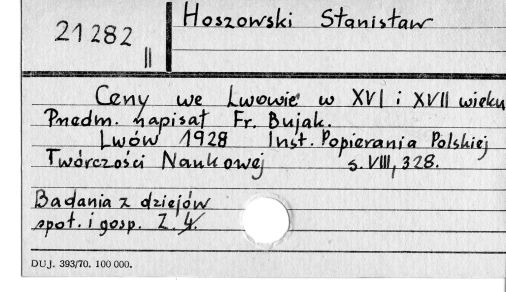 Hoszowski Stanisław
21282
II
Ceny we Lwowie w XVI i XVII wieku
Przedm. napisał Fr. Bujak.
Lwów 1928 Inst. Popierania Polskiej
Twórczości Naukowej s. VIII, 328.
Badania z dziejów
społ. i gosp. Z. 4.
DUJ. 393/70. 100 000.